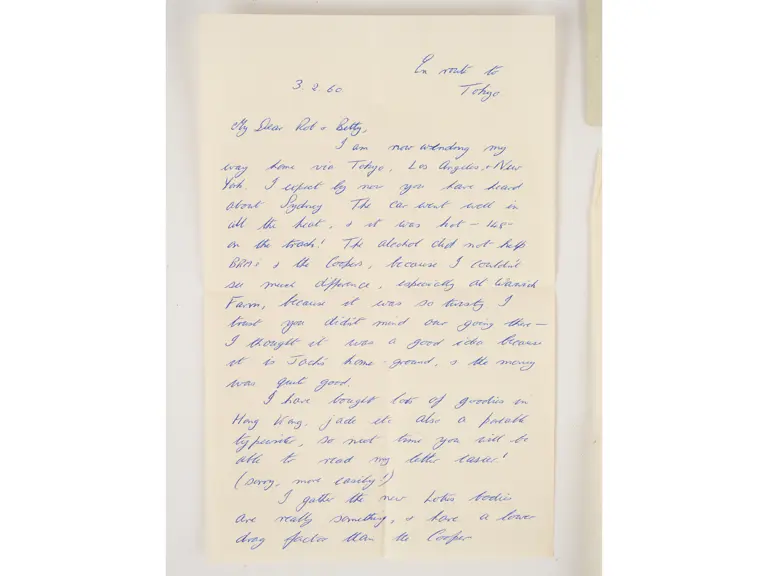 En route to
3.2.60 Tokyo
My Dear Rob + Betty,
I am now wending my
way home via Tokyo, Los Angeles, + New
York. I expect by now you have heard
about Sydney The car went well in
all the heat, + it was hot – 148°
on the track! The alcohol did not help
BRM's + the Cooper, because I couldn't
see much difference, especially at Warwick
Farm, because it was so twisty I
trust you didn't mind our going there –
I thought it was a good idea because
it is Jack's home-ground, + the money
was quite good.
I have bought lots of goodies in
Hong Kong, jade etc. also a portable
typewriter, so next time you will be
able to read my letter easier!
(sorry, more easily!)
I gather the new Lotus bodies
are really something, + have a lower
drag factor than the Cooper